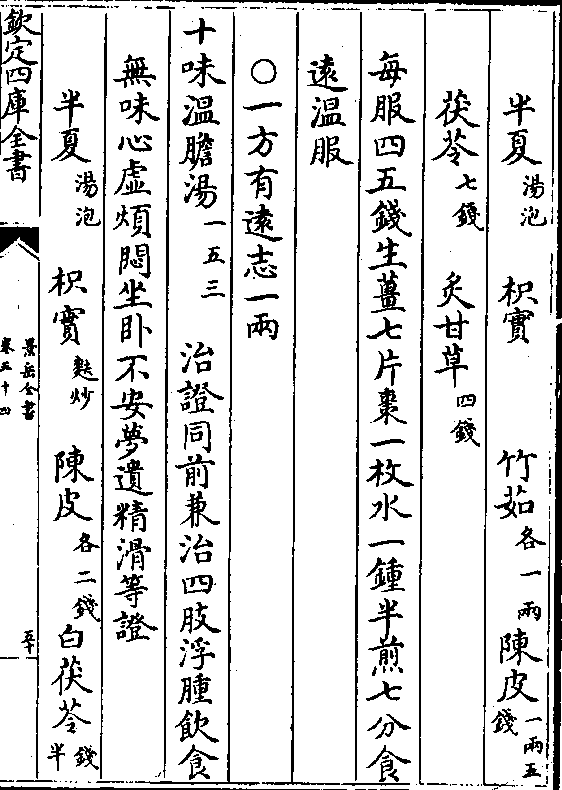 半夏湯泡 枳實 竹茹各一兩 陳皮一兩五錢
茯苓七錢 炙甘草四錢
每服四五錢生薑七片棗一枚水一鍾半煎七分食
遠溫服
○一方有遠志一兩
十味溫膽湯一五三 治證同前兼治四肢浮腫飲食
無味心虛煩悶坐卧不安夢遺精滑等證
半夏湯泡 枳實麩炒 陳皮各二錢 白茯苓錢半
欽定四庫全書
景岳全書
卷五十四
五十